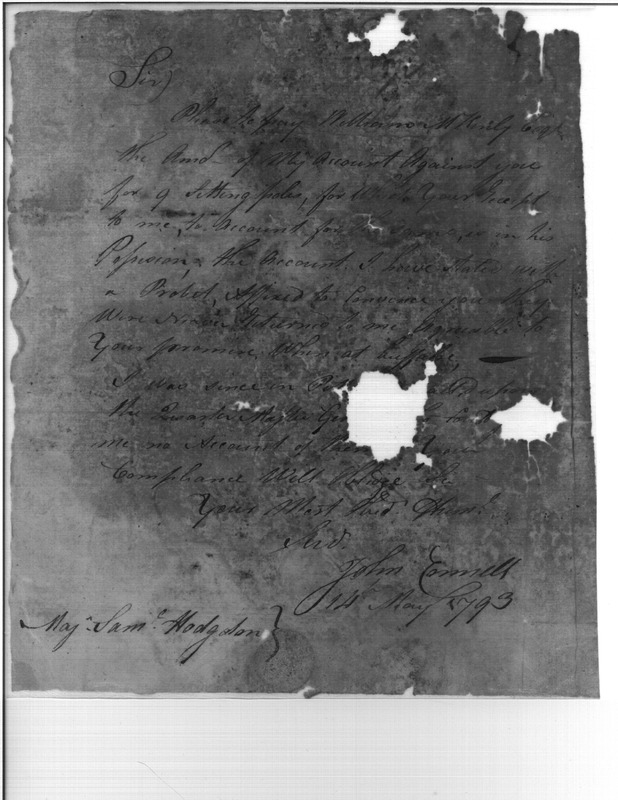 Sir,
Please to pay William McKinly Esqr
the Amt of My Account Against you
for 9 Setting poles, for which Your Receipt
to me, to Account for the same, is in his
Possession, the Account I have Stated with
a Probit, Affixed to Convince you they
Were Never Returned to me, Agreeable to
Your promise When at
I was since in
the Quarter Master
me no Account of them
Compliance Will Oblige
Your Most Obdt Humle
Servt
John Connell
14th May 1793
Majr Saml Hodgdon